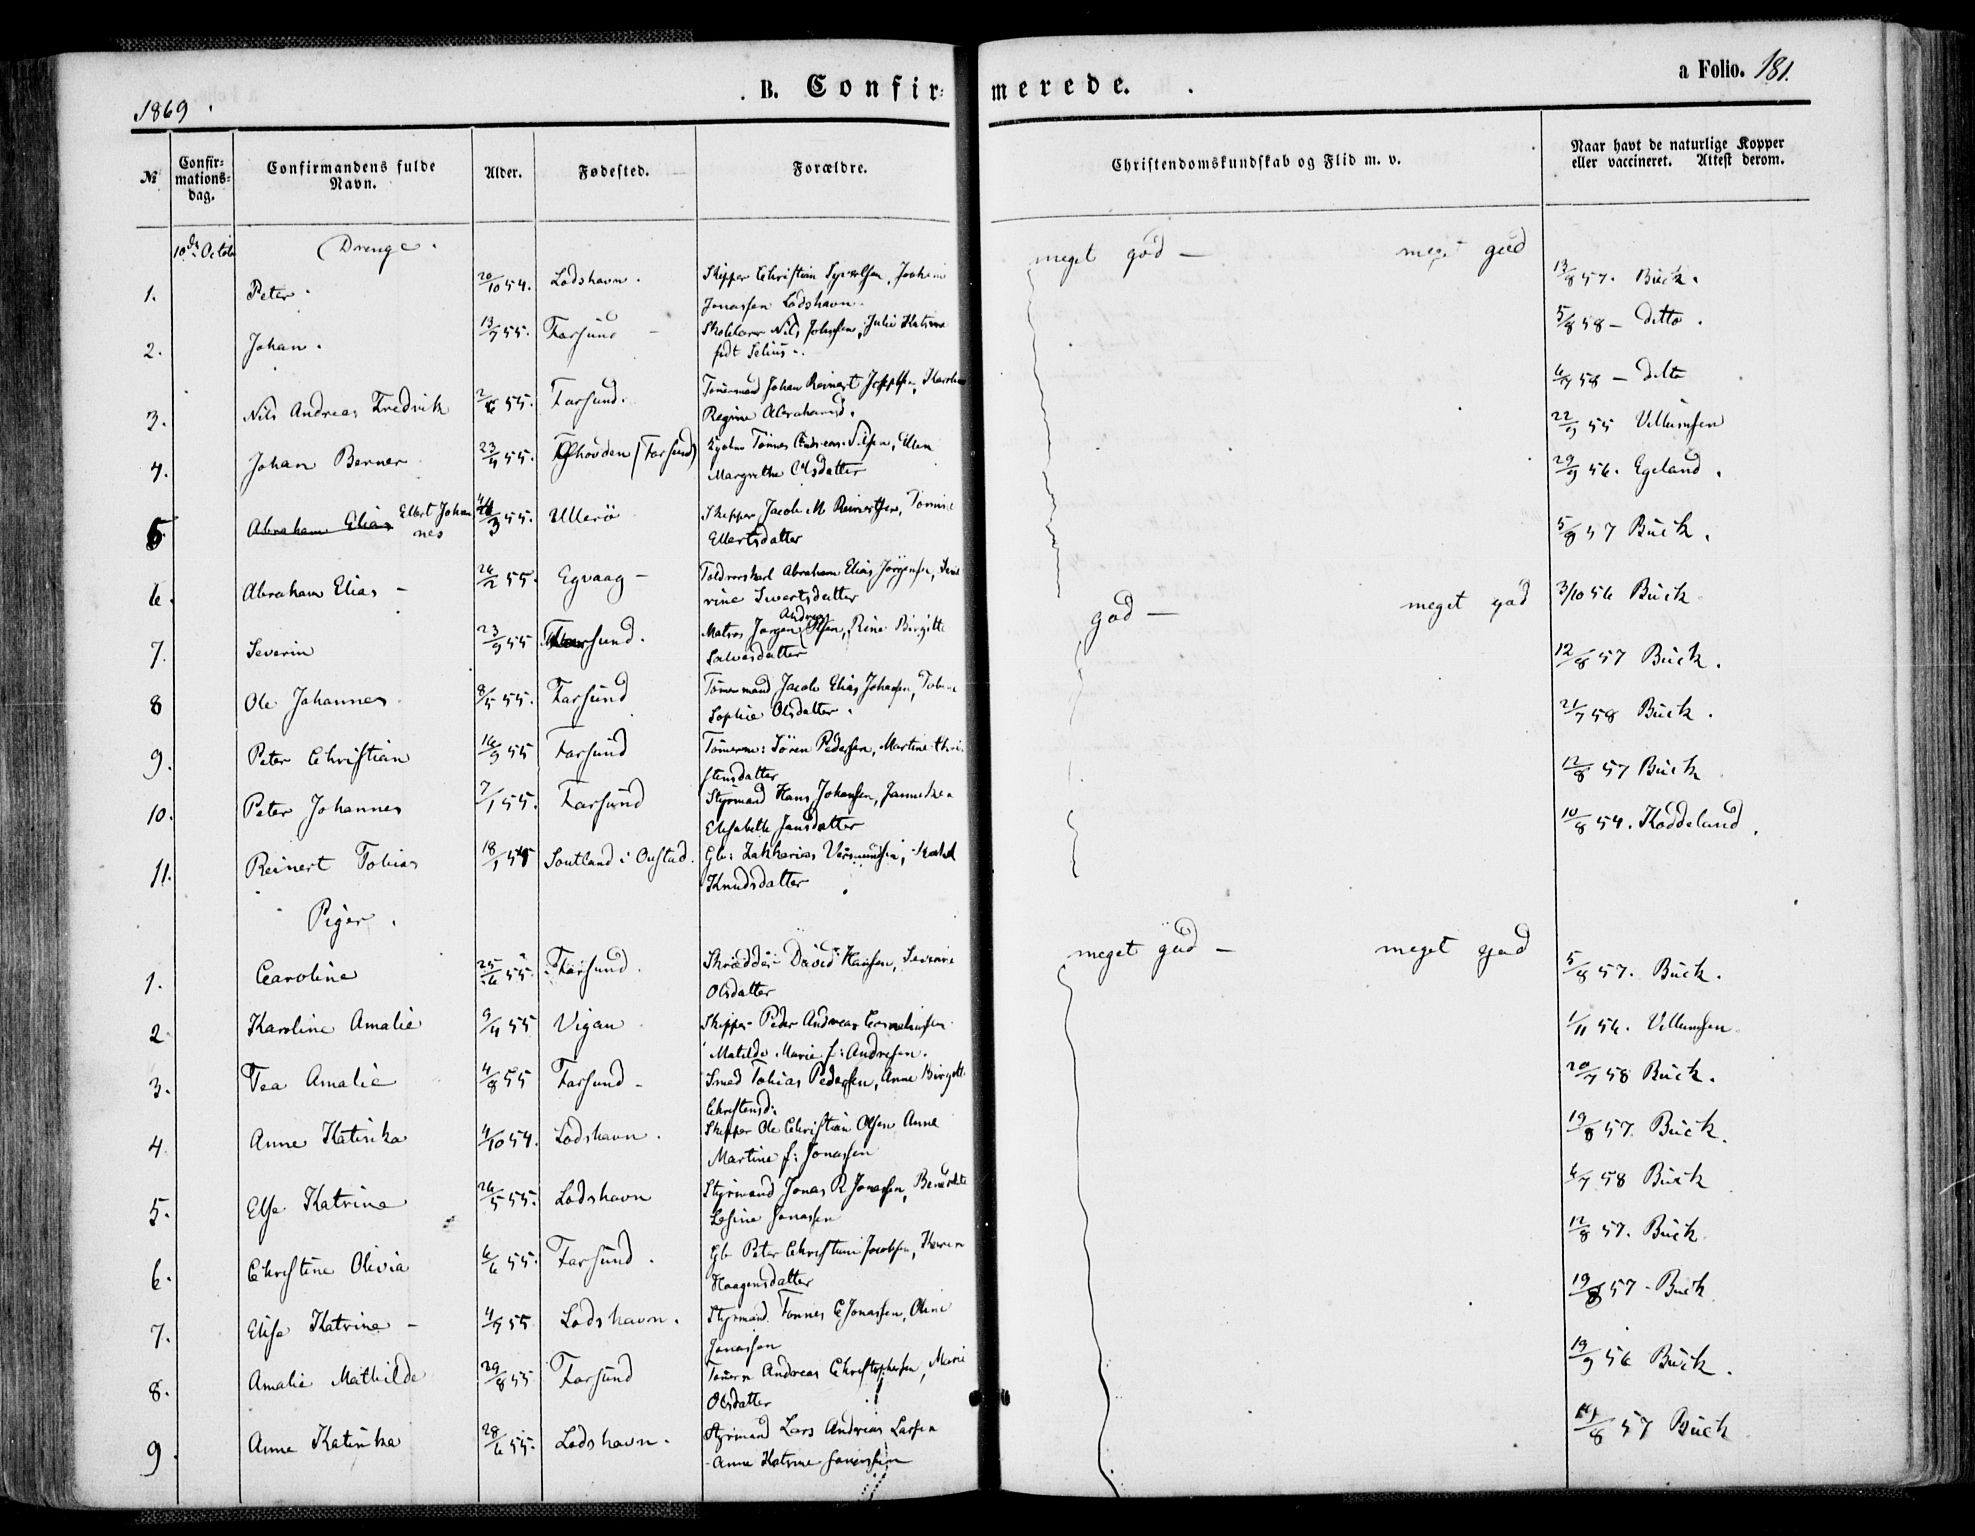 1869.
B. Confir-
merede.
a Folio. 181.
№
Confir-
mations-
dag.
Confirmandens fulde
Navn.
Alder.
Fødested.
Forældre.
Christendomskundskab og Flid m. v.
Naar havt de naturlige Kopper
eller vaccineret. Attest derom.
10de Octob
Drenge.
1. Peter. 20/10 54. Lodshavn. Skipper Christian Jochim
Jonassen Lodshavn.
meget god — meget god
13/8 57. Buck.
2. Johan. 13/7 55. Farsund — Skolelærer Nils Johnsen, Julie Katrine
født Selius.
5/8 58 — ditto.
3. Nils Andreas Fredrik 55. Farsund. Tømermand Johan Reinert Karoline
Regine Abrahamsd.
58 — ditto
4. Johan Berner 23/4 55. (Farsund) Tønnes Andreas Ellen
Margrethe Olsdatter
22/9 55 Villumsen
29/9 56. Egeland.
5 Abraham Elias Ellert Johan
nes
3 55. Ullerö Skipper Jacob M Reinertsen, Tomine
Ellertsdatter
5/8 57 Buck.
6. Abraham Elias — 26/2 55. Egvaag — Abraham Elias Jørgensen,
Sivertsdatter
3/10 56 Buck
7. Severin 23/9 55 Farsund. Matros Jørgen Andreas Olsen, Rine Birgitte
Salvesdatter
god — meget god
12/8 57 Buck.
8 Ole Johannes 8/5 55. Farsund Tømermand Jacob Elias Johnsen,
Sophie Olsdatter.
21/7 58 Buck.
9. Peter Christian 16/9 55 Farsund Tømerm: Sören Pedersen, Martine Chri-
stensdatter
12/8 57 Buck
10. Peter Johannes 7/1 55. Farsund Styrmand Hans Johansen,
Elisabeth Jansdatter
10/8 54. Röddeland.
11. Reinert Tobias 18/1 55 i Gb: Zakharias
Knudsdatter
Piger.
1. Caroline 25/6 55. Farsund. Skrædder David Hansen, Severine
Olsdatter
meget god — meget god
5/8 57. Buck.
2. Karoline Amalie 9/4 55 Vigan Skipper Peder Andreas Corneliussen
Matilde Marie f: Andresen.
1/11 56. Villumsen
3. Tea Amalie 4/8 55 Farsund — Smed Tobias Pedersen, Anne Birgitte
Christensd:
20/7 58 Buck.
4. Anne Katinka 4/10 54. Lodshavn. Skipper Ole Christian Olsen Anne
Martine f: Jonassen
19/8 57. Buck.
5. Else Katrine 26/5 55. Lodshavn Styrmand Jonas R Jonassen,
Lesine Jonassen
58 Buck
6. Christine Olivia 6/6 55. Farsund. Gb Peter Christian Jacobsen, Karen
Haagensdatter
12/8 57. Buck
7. Elise Katrine — 55 Lodshavn. Styrmand Tønnes E Jonassen, Oline
Jonassen
19/8 57 — Buck
8. Amalie Mathilde 29/8 55 Farsund Tømerm Andreas Christophersen, Marie
Olsdatter
19/9 56 Buck.
9. Anne Katinka 28/6 55. Lodshavn. Styrmand Lars Andreas Larsen
Anne Katrine
8 57 Buck